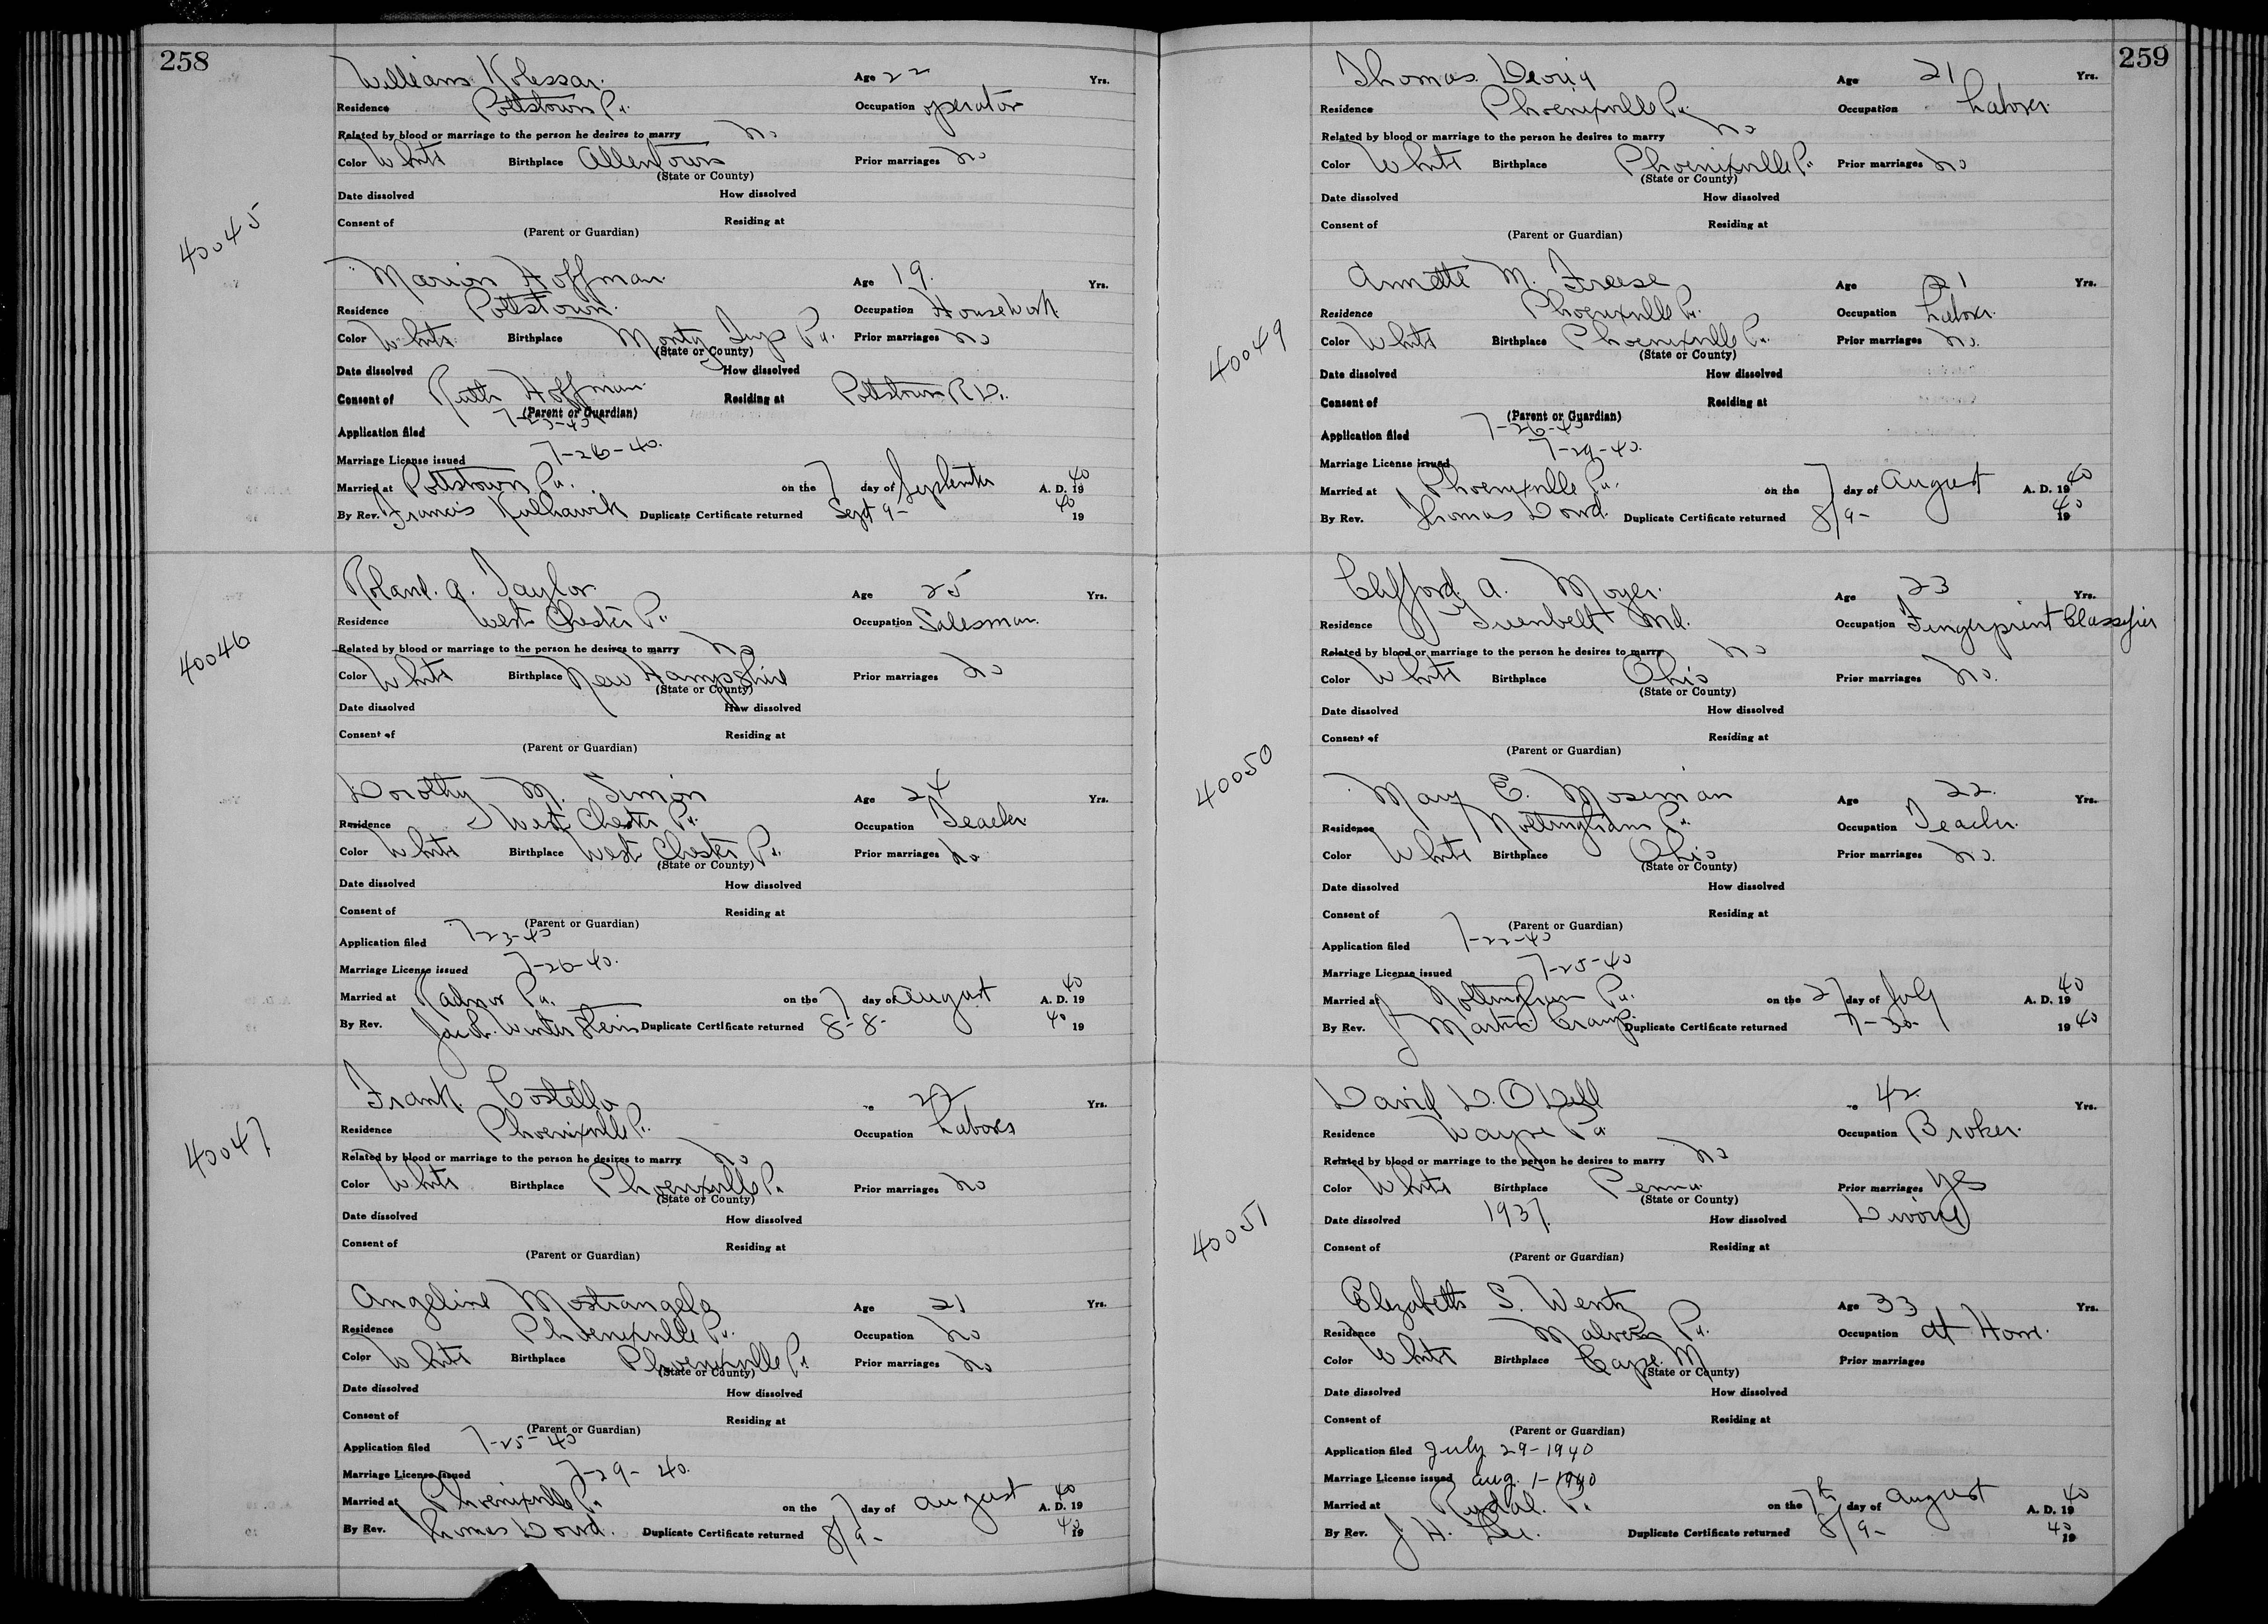 258
William Kolessar. Age 22 Yrs.
Residence Pottstown Pa. Occupation operator
Related by blood or marriage to the person he desires to marry No
Color White Birthplace Allentown Prior marriages No
(State or County)
Date dissolved How dissolved
Consent of Residing at
(Parent or Guardian)
40045
Marion Hoffman. Age 19. Yrs.
Residence Pottstown. Occupation Housework
Color White Birthplace Monty Pa. Prior marriages No
(State or County)
Date dissolved How dissolved
Consent of Ruth Hoffman. Residing at Pottstown R D.
(Parent or Guardian)
Application filed 7-23-40
Marriage License issued 7-26-40.
Married at Pottstown Pa. on the 7 day of September A. D. 19 40
By Rev. Francis Kulhawik Duplicate Certificate returned Sept 9- 19 40
Roland. A. Taylor Age 25 Yrs.
Residence West Chester Pa. Occupation Salesman.
40046
Related by blood or marriage to the person he desires to marry No
Color White Birthplace New Hampshire Prior marriages No
(State or County)
Date dissolved How dissolved
Consent of Residing at
(Parent or Guardian)
Dorothy M. Simon Age 24 Yrs.
Residence West Chester Pa. Occupation Teacher.
Color White Birthplace West Chester Pa. Prior marriages No
(State or County)
Date dissolved How dissolved
Consent of Residing at
(Parent or Guardian)
Application filed 7-23-40
Marriage License issued 7-26-40.
Married at Radnor Pa. on the 7 day of August A. D. 19 40
By Rev. Winterstein Duplicate Certificate returned 8-8- 19 40
Frank. Costello 22 Yrs.
Residence Phoenixville Pa. Occupation Laborer
40047
Related by blood or marriage to the person he desires to marry No
Color White Birthplace Phoenixville Pa. Prior marriages No
(State or County)
Date dissolved How dissolved
Consent of Residing at
(Parent or Guardian)
Angeline Mostrangelo Age 21 Yrs.
Residence Phoenixville Pa. Occupation No
Color White Birthplace Phoenixville Pa. Prior marriages No
(State or County)
Date dissolved How dissolved
Consent of Residing at
(Parent or Guardian)
Application filed 7-25-40
Marriage License issued 7-29-40.
Married at Phoenixville Pa. on the 7 day of August A. D. 19 40
By Rev. Thomas Dowd. Duplicate Certificate returned 8/9- 19 40
259
Thomas Age 21 Yrs.
Residence Phoenixville Pa. Occupation Laborer.
Related by blood or marriage to the person he desires to marry No
Color White Birthplace Phoenixville Pa. Prior marriages No
(State or County)
Date dissolved How dissolved
Consent of Residing at
(Parent or Guardian)
Annette M. Freese Age 21 Yrs.
Residence Phoenixville Pa. Occupation Labor.
40049
Color White Birthplace Phoenixville Pa. Prior marriages No.
(State or County)
Date dissolved How dissolved
Consent of Residing at
(Parent or Guardian)
Application filed 7-26-40
Marriage License issued 7-29-40.
Married at Phoenixville Pa. on the 7 day of August A. D. 19 40
By Rev. Thomas Dowd. Duplicate Certificate returned 8/9- 19 40
Clifford A. Moyer. Age 23 Yrs.
Residence Greenbelt Md. Occupation Fingerprint Classifier
Related by blood or marriage to the person he desires to marry No
Color White Birthplace Ohio Prior marriages No.
(State or County)
Date dissolved How dissolved
Consent of Residing at
(Parent or Guardian)
40050
Mary E. Moseman Age 22. Yrs.
Residence Nottingham Pa. Occupation Teacher.
Color White Birthplace Ohio Prior marriages No.
(State or County)
Date dissolved How dissolved
Consent of Residing at
(Parent or Guardian)
Application filed 7-22-40
Marriage License issued 7-25-40
Married at Nottingham Pa. on the 27 day of July A. D. 19 40
By Rev. J Martin Duplicate Certificate returned 7-30- 19 40
David D. Odell 42. Yrs.
Residence Wayne Pa. Occupation Broker.
Related by blood or marriage to the person he desires to marry No
Color White Birthplace Penna. Prior marriages Yes
(State or County)
40051
Date dissolved 1937. How dissolved Divorced
Consent of Residing at
(Parent or Guardian)
Elizabeth S. Wentz Age 33 Yrs.
Residence Malvern Pa. Occupation At Home.
Color White Birthplace Cape. M Prior marriages
(State or County)
Date dissolved How dissolved
Consent of Residing at
(Parent or Guardian)
Application filed July 29-1940
Marriage License issued Aug. 1-1940
Married at Pa. on the 7th day of August A. D. 19 40
By Rev. J H. Lee. Duplicate Certificate returned 8/9- 19 40